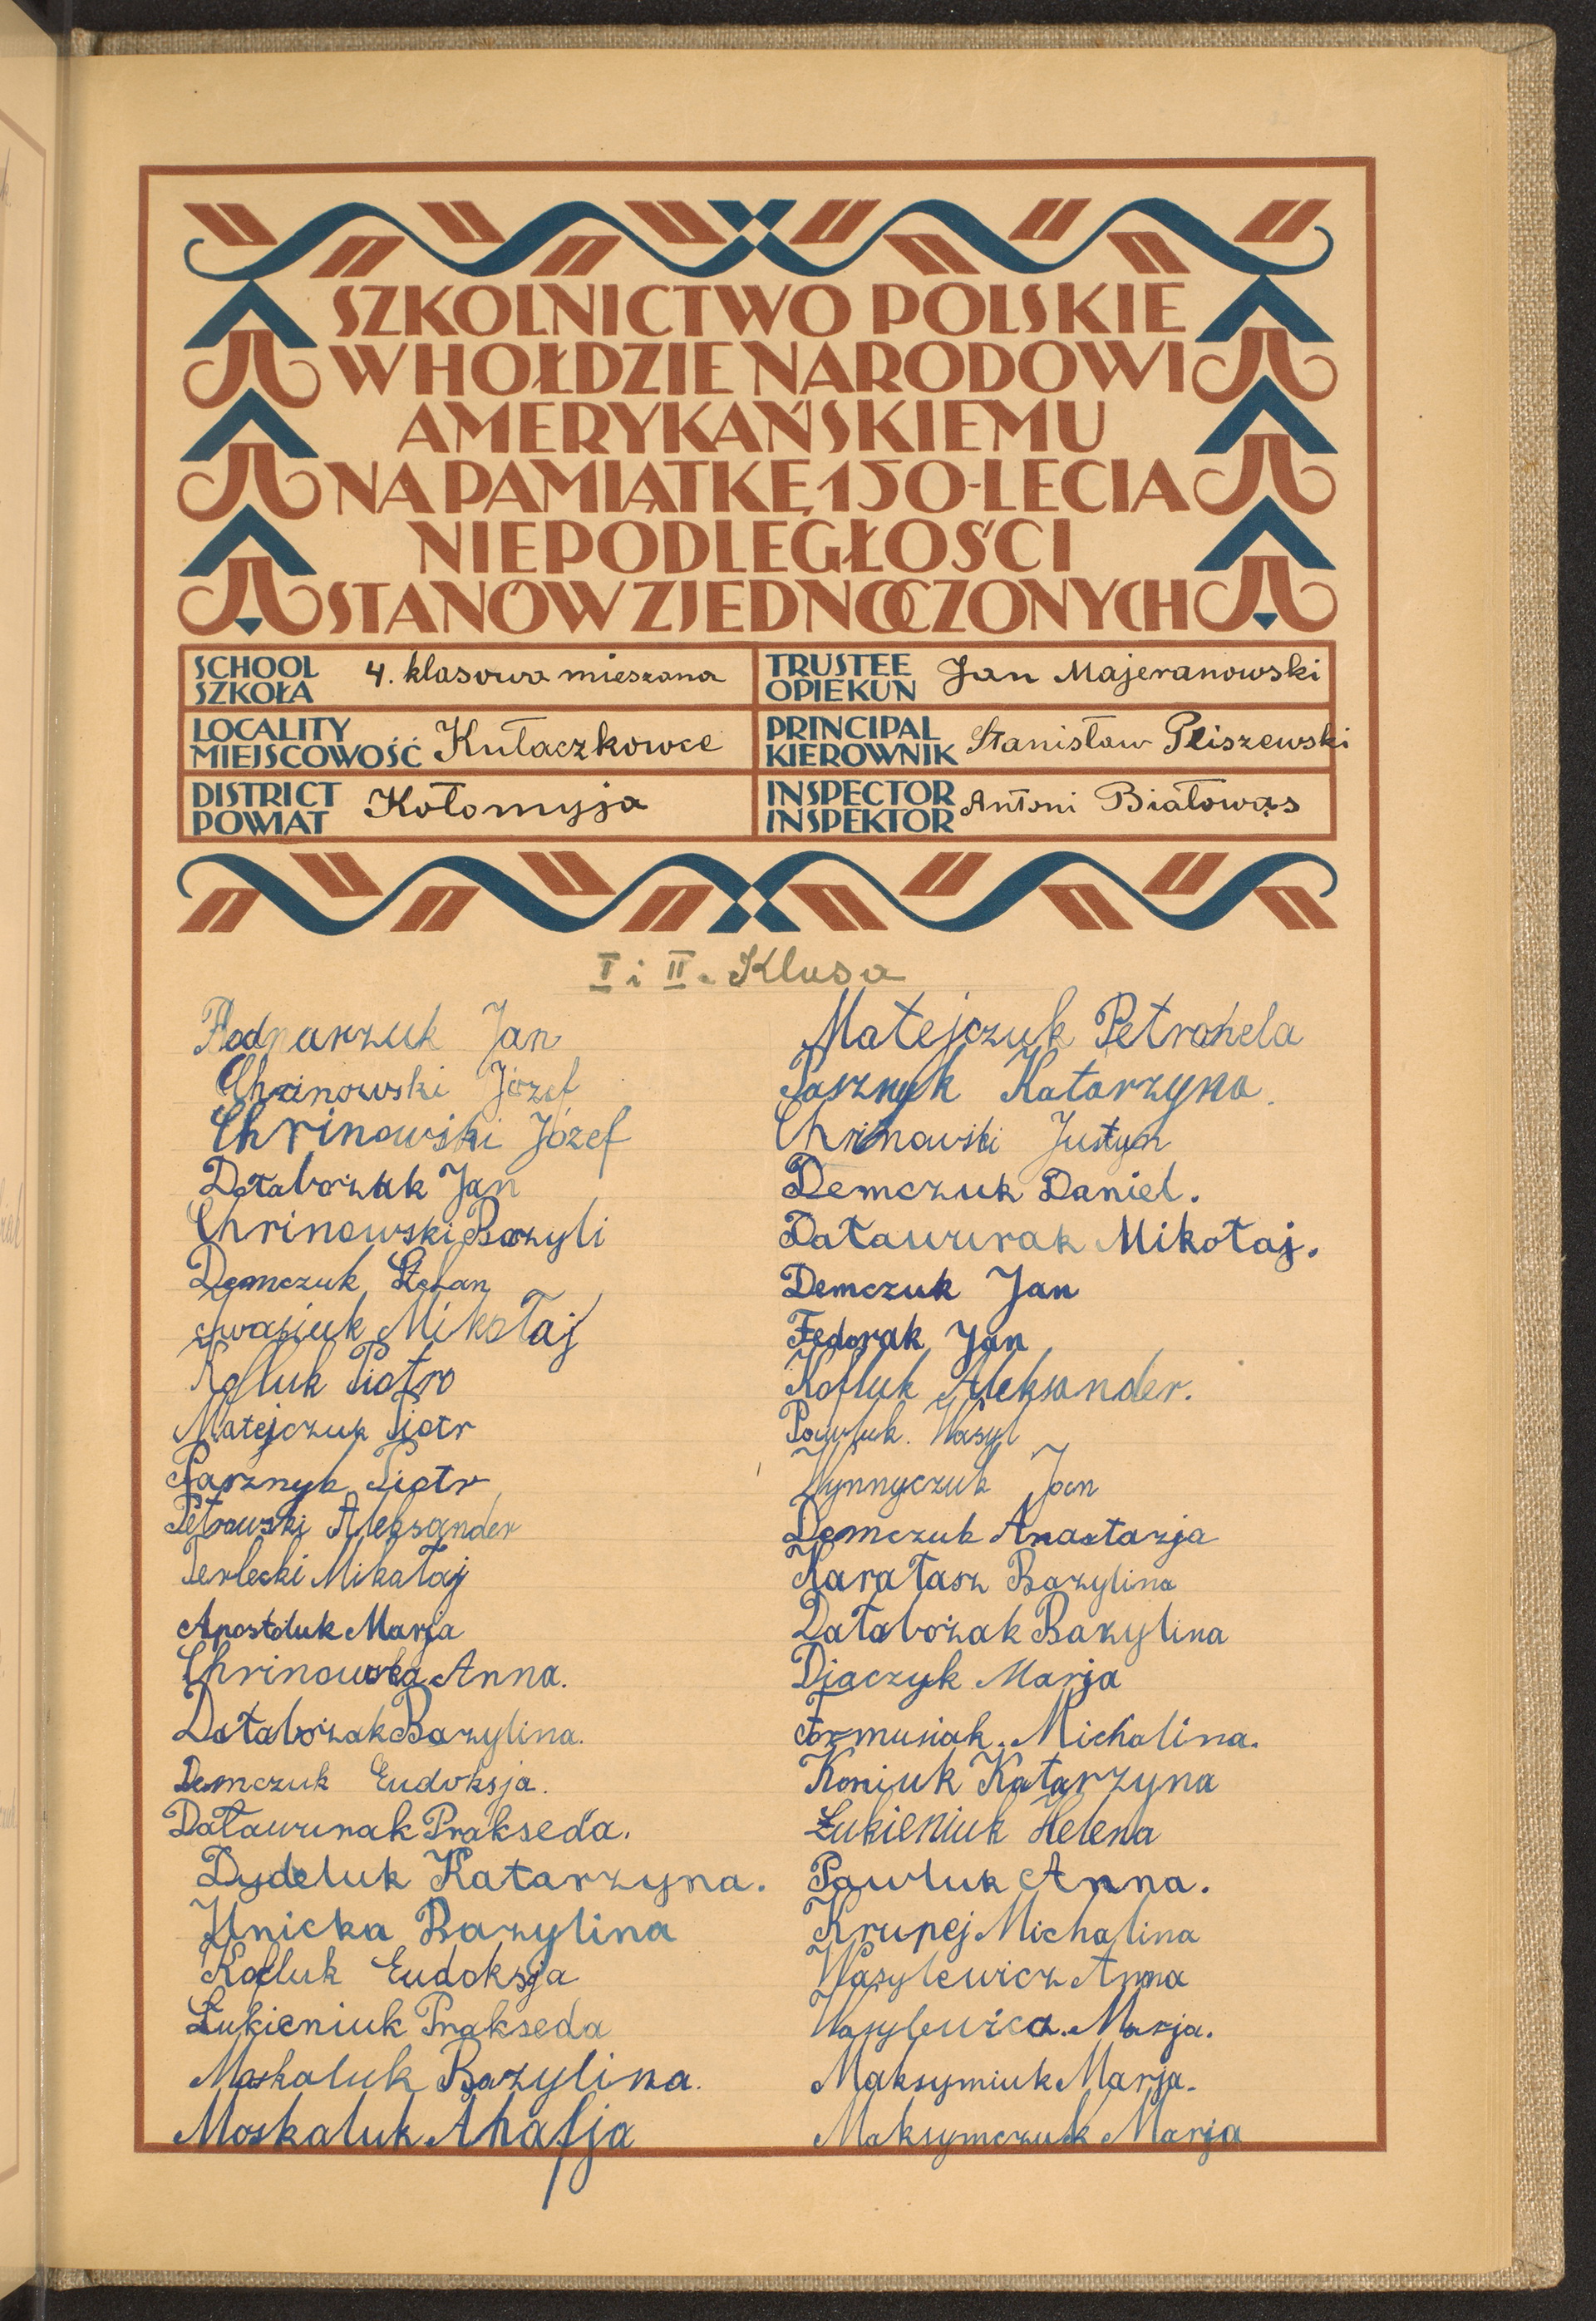 SZKOLNICTWO POLSKIE
W HOŁDZIE NARODOWI
AMERYKAŃSKIEMU
NA PAMIĄTKĘ 150-LECIA
NIEPODLEGŁOŚCI
STANÓW ZJEDNOCZONYCH
SCHOOL
SZKOŁA
4. klasowa mieszana
TRUSTEE
OPIEKUN
Jan Majeranowski
LOCALITY
MIEJSCOWOŚĆ
Kułaczkowce
PRINCIPAL
KIEROWNIK
Stanisław Pliszewski
DISTRICT
POWIAT
Kołomyja
INSPECTOR
INSPEKTOR
Antoni Białowąs
I i II. Klasa
Jan
Chrinowski Józef
Chrinowski Józef
Dołabożak Jan
Chrinowski Bazyli
Demczuk Stefan
Iwasiuk Mikołaj
Kofluk Piotro
Matejczuk Piotr
Parznyk Piotr
Petrowski Aleksander
Terlecki Mikołaj
Apostoluk Marja
Chrinowska Anna.
Databożak Bazylina.
Demczuk Eudoksja.
Datawurak Prakseda.
Dydeluk Katarzyna.
Ilnicka Bazylina
Kofluk Eudoksja
Łukieniuk Prakseda
Moskaluk Bazylina.
Moskaluk Ahafja
Matejczuk Petronela
Katarzyna.
Chrinowski Justyn
Demczuk Daniel.
Datawurak Mikołaj.
Demczuk Jan
Fedorak Jan
Kofluk Aleksander.
Pawluk. Wasyl
Wynnyczuk Jan
Demczuk Anastazja
Karałasz Bazylina
Databożak Bazylina
Djaczyk Marja
Formusiak. Michalina.
Koniuk Katarzyna
Łukieniuk Helena
Pawluk Anna.
Krupej Michalina
Wasylewicz Anna
Wasylewicz. Marja.
Maksymiuk Marja.
Maksymczuk Marja